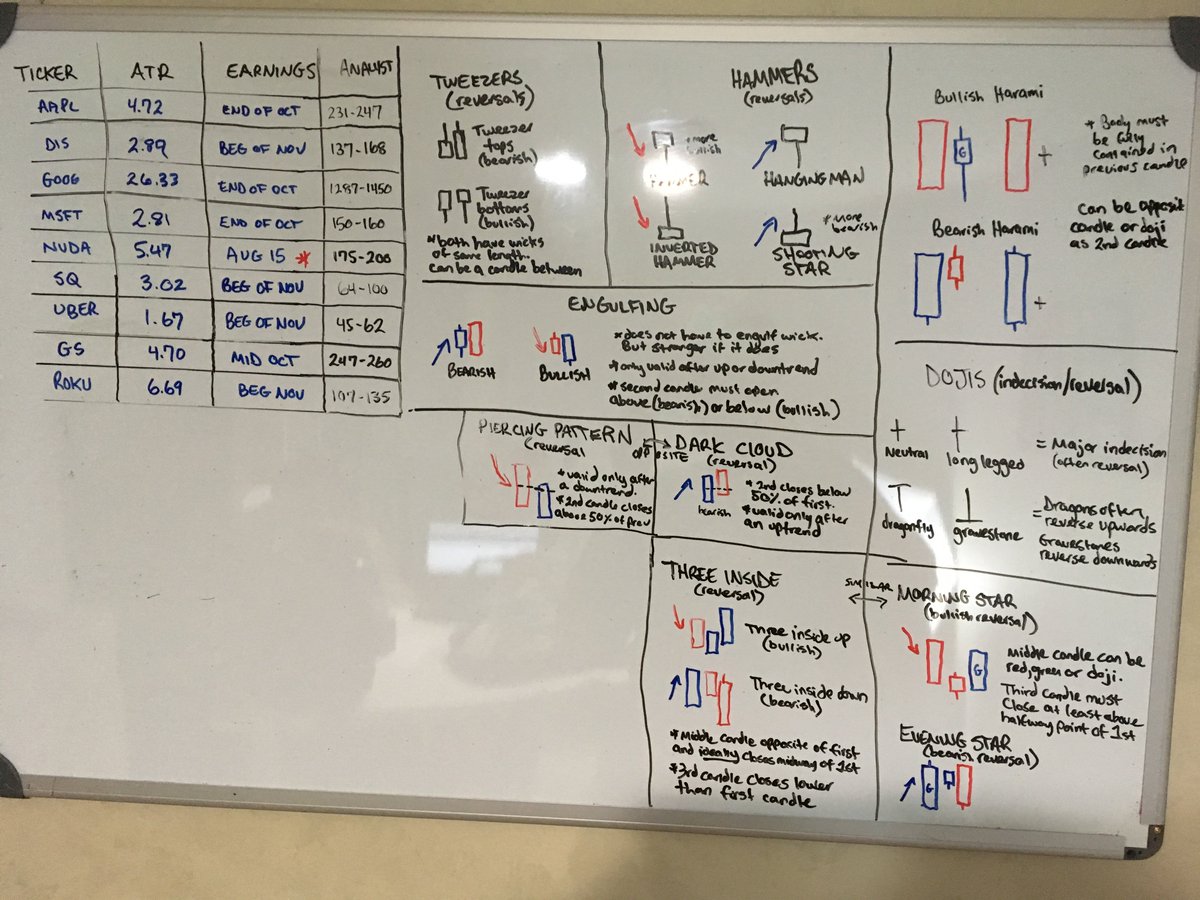 TICKER ATR EARNINGS ANALYST
AAPL 4.72 END OF OCT 231-247
DIS 2.89 BEG OF NOV 137-168
GOOG 26.33 END OF OCT 1287-1450
MSFT 2.81 END OF OCT 150-160
NVDA 5.47 AUG 15 * 175-200
SQ 3.02 BEG OF NOV 64-100
UBER 1.67 BEG OF NOV 45-62
GS 4.70 MID OCT 247-260
ROKU 6.69 BEG NOV 107-135
TWEEZERS
(reversals)
Tweezer
tops
(bearish)
Tweezer
bottoms
(bullish)
*both have wicks
of same length.
can be a candle between
HAMMERS
(reversals)
*more
bullish
HAMMER
HANGING MAN
INVERTED
HAMMER
*more
bearish
SHOOTING
STAR
ENGULFING
BEARISH
BULLISH
*does not have to engulf wicks.
But stronger if it does
*only valid after up or downtrend
*second candle must open
above (bearish) or below (bullish)
PIERCING PATTERN
(reversal
*valid only after
a downtrend.
*2nd candle closes
above 50% of prev
OPPOSITE
DARK CLOUD
(reversal)
bearish
*2nd closes below
50% of first.
*valid only after
an uptrend
THREE INSIDE
(reversal)
Three inside up
(bullish)
Three inside down
(bearish)
*Middle candle opposite of first
and ideally closes midway of 1st
*3rd candle closes lower
than first candle
SIMILAR
Bullish Harami
G
+
*Body must
be fully
containd in
previous candle
can be opposit
candle or doji
as 2nd candle
Bearish Harami
+
DOJIS (indecision/reversal)
Neutral
long legged
= Major indecision
(often reversal)
dragonfly
gravestone
= Dragons often,
reverse upwards
Gravestones
reverse downwards
MORNING STAR
(bullish reversal)
G
Middle candle can be
red, green or doji.
Third candle must
close at least above
halfway point of 1st
EVENING STAR
(bearish reversal)
G